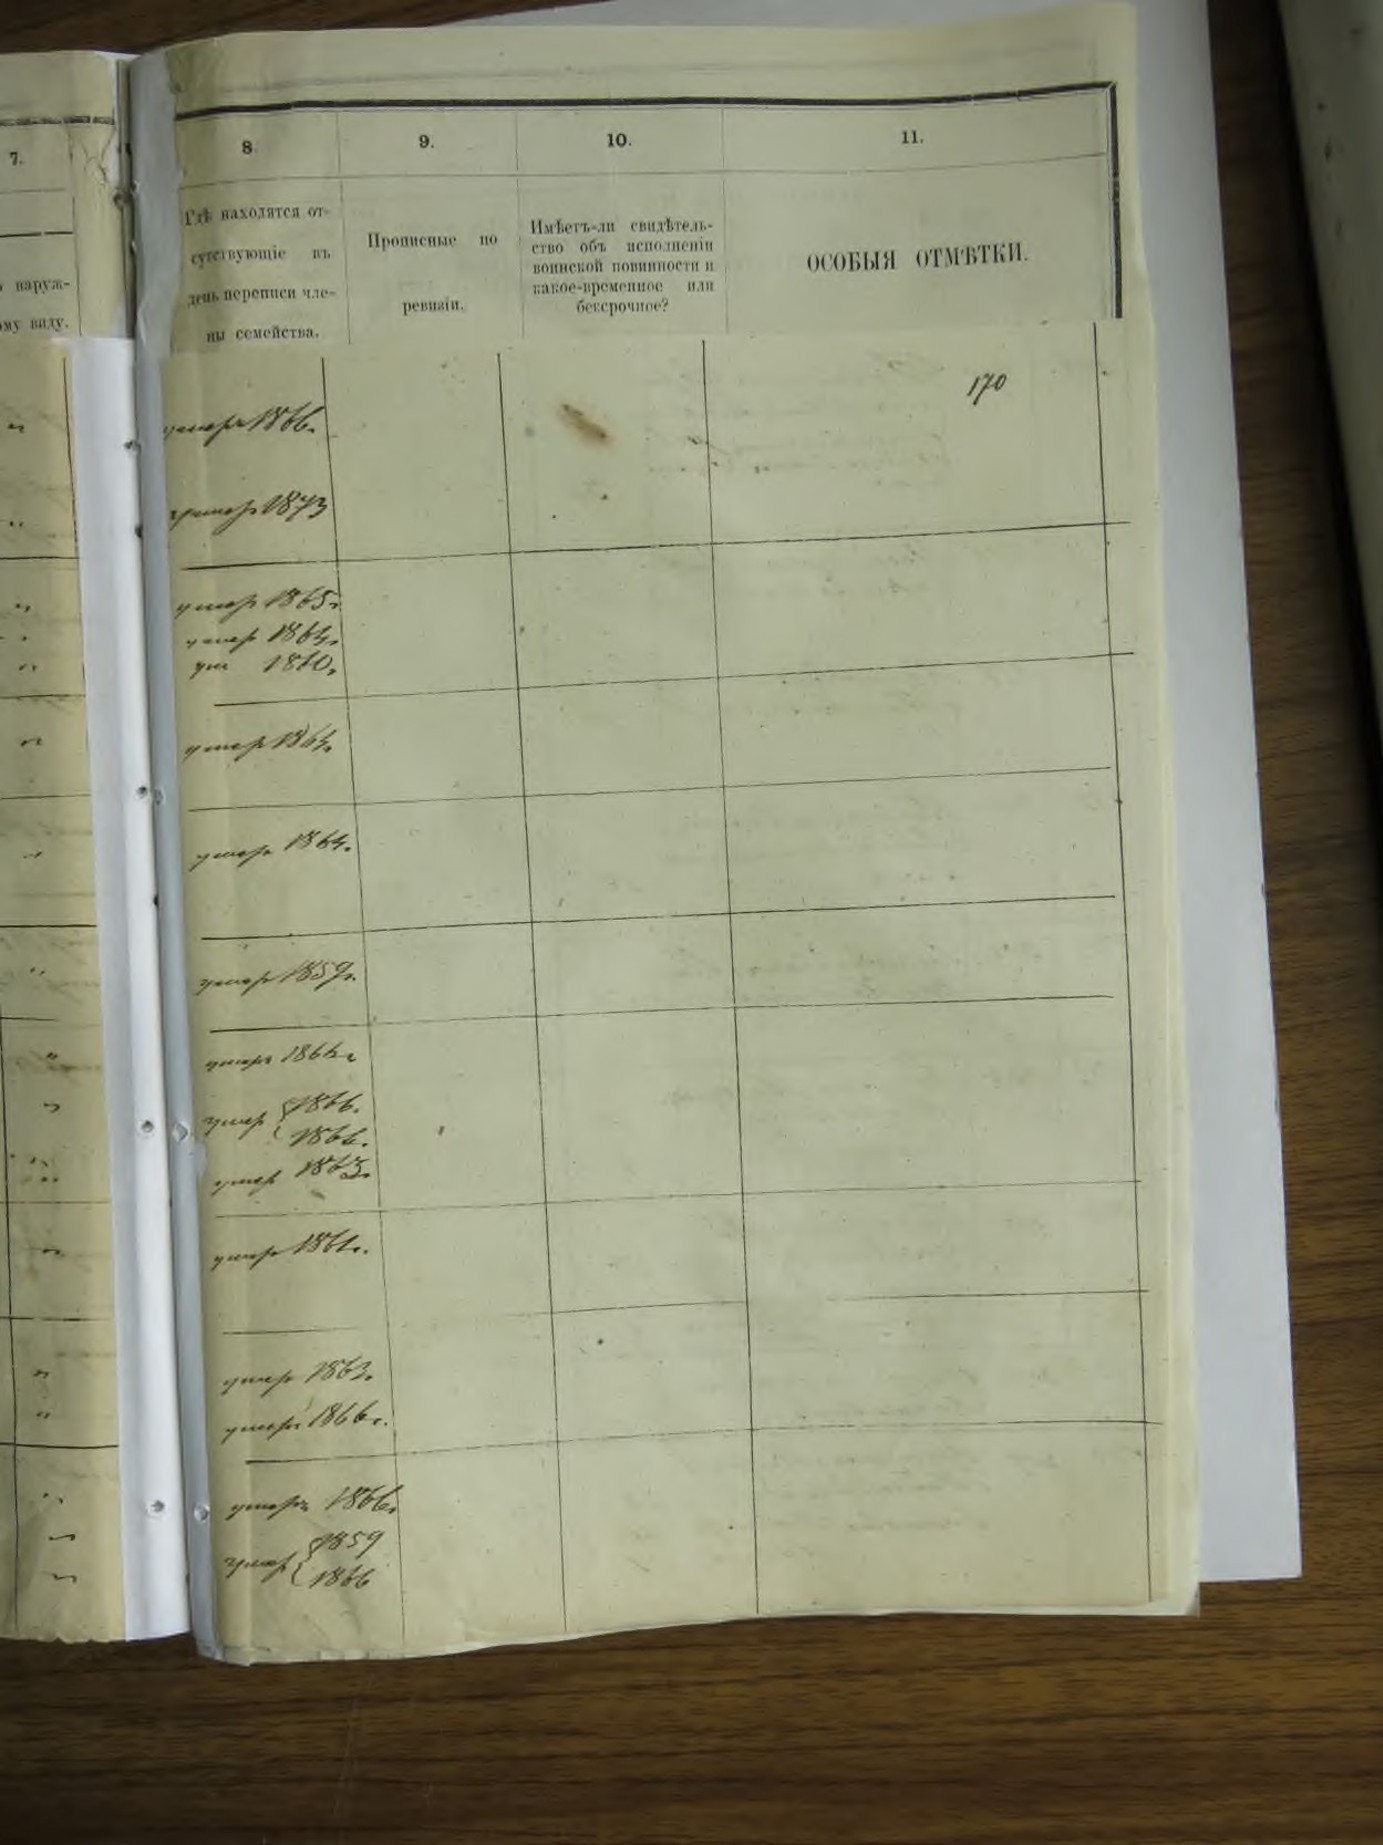 7.
8.
9.
10.
11.
наруж-
ому виду.
Гдѣ находятся от-
сутствующіе въ
день переписи чле-
ны семейства.
Прописные по
ревизіи.
Имѣетъ-ли свидѣтель-
ство объ исполненіи
воинской повинности и
какое-временное или
безсрочное?
ОСОБЫЯ ОТМѢТКИ.
170
умеръ 1866.
умер 1873
умер 1865.
умер 1864.
ум 1860.
умер 1864.
умер 1864.
умер 1859.
умеръ 1864г
умер 1866.
1866.
умер 1863.
умер 1861г.
умер 1863.
умеръ 1866г.
умеръ 1866.
умер 1859
1866